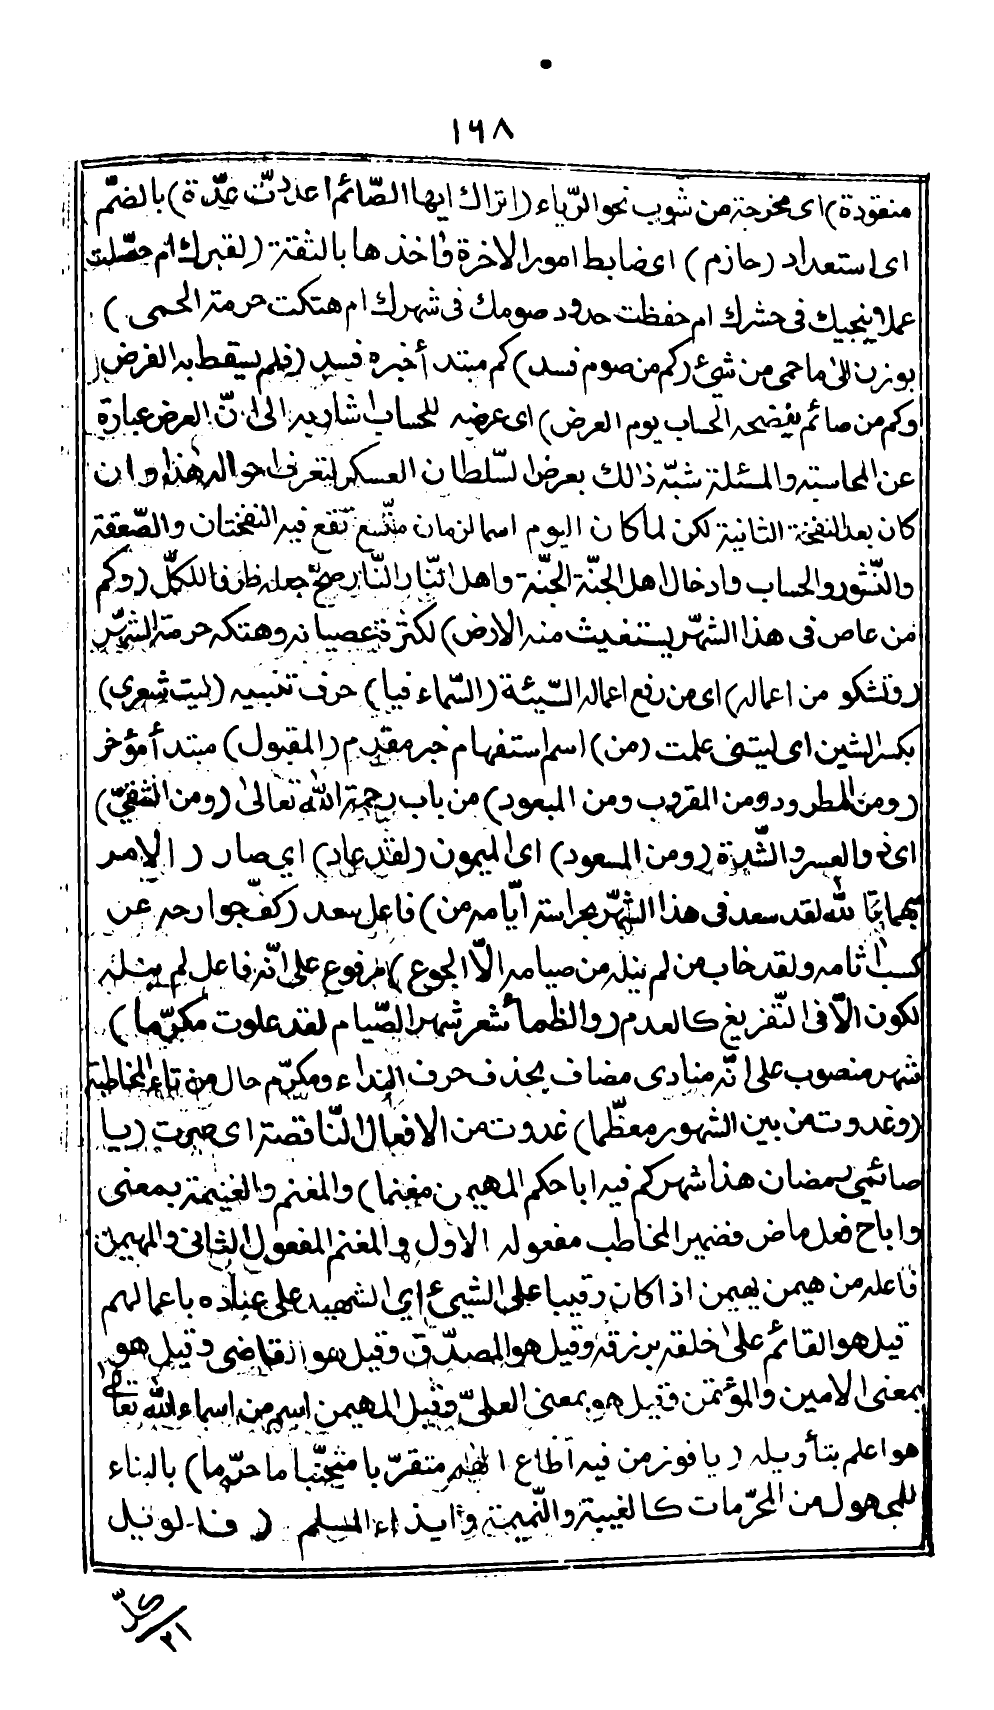 ١٦٨
منقودة) اى مخرجة من شوب نحو الرّياء (اتراك ايها الصّائم اعددتّ عدّة) بالضمّ
اى استعداد (حازم) اى ضابط امور الاخرة فأخذها بالثقة (لقبرك ام حصّلت
عملا ينجيك فى حشرك ام حفظت حدود صومك فى شهرك ام هتكت حرمة الحمى)
بوزن الىٰ ما حمى من شئ (كم من صوم فسد) كم مبتدأ خبره فسد (فلم يسقط به الفرض
وكم من صائم يفضحه الحساب يوم العرض) اى عرضه للحساب اشار به الى ان العرض عبارة
عن المحاسبة والمسئلة شبّه ذالك بعرض السّلطان العسكر ليتعرف احواله هٰذا وان
كان بعد النفخة الثانية لكن لما كان اليوم اسما لزمان متّسع تقع فيه النفختان والصّعقة
والنّشور والحساب وادخال اهل الجنّة الجنّة واهل النّار النّار صحّ جعله ظرفا للكلّ (وكم
من عاص فى هذا الشهر يستغيث منه الارض) لكثرة عصيانه وهتكه حرمة الشهر
(وتشكو من اعماله) اى من رفع اعماله السّيئة (السّماء فيا) حرف تنبيه (ليت شعرى)
بكسر الشين اى ليتنى علمت (من) اسم استفهام خبر مقدم (المقبول) مبتدأ مؤخر
(ومن المطرود ومن المقروب ومن المبعود) من باب رحمة اللّٰه تعالىٰ (ومن الشقىّ)
اى ذو العسر والشّدة (ومن المسعود) اى الميمون (لقد عاد) اى صار (الامر
مبهما تاللّٰه لقد سعد فى هذا الشهر بحراسة ايّامه من) فاعل سعد (كفّ جوارحه عن
كسب اثامه ولقد خاب من لم ينله من صيامه الّا الجوع) مرفوع على انّه فاعل لم ينله
لكون الّا فى التّفريغ كالعدم (والظمأ شعر شهر الصّيام لقد علوت مكرّما)
شهر منصوب على انّه منادى مضاف بحذف حرف النداء ومكرّم حال من تاء المخاطبة
(وغدوت من بين الشهور معظّما) غدوت من الافعال النّاقصة اى صرت (يا
صائمى رمضان هذا شهركم فيه اباحكم المهيمن مغنما) والمغنم والغنيمة بمعنى
واباح فعل ماض فضمير المخاطب مفعوله الاول والمغنم المفعول الثانى والمهيمن
فاعله من هيمن يهيمن اذا كان رقيبا على الشيئ اي الشهيد على عباده باعمالهم
قيل هو القائم علىٰ خلقه برزقه وقيل هو المصدّق وقيل هو القاضى وقيل هو
بمعنى الامين والمؤتمن وقيل هو بمعنى العلىّ وقيل المهيمن اسم من اسماء اللّٰه تعالىٰ
هو اعلم بتأويله (يا فوز من فيه اطاع الٰهه متقرّبا متجنّبا ما حرّما) بالبناء
للمجهول من المحرّمات كالغيبة والنّميمة وايذاء المسلم (فالويل
كلّ
٢١